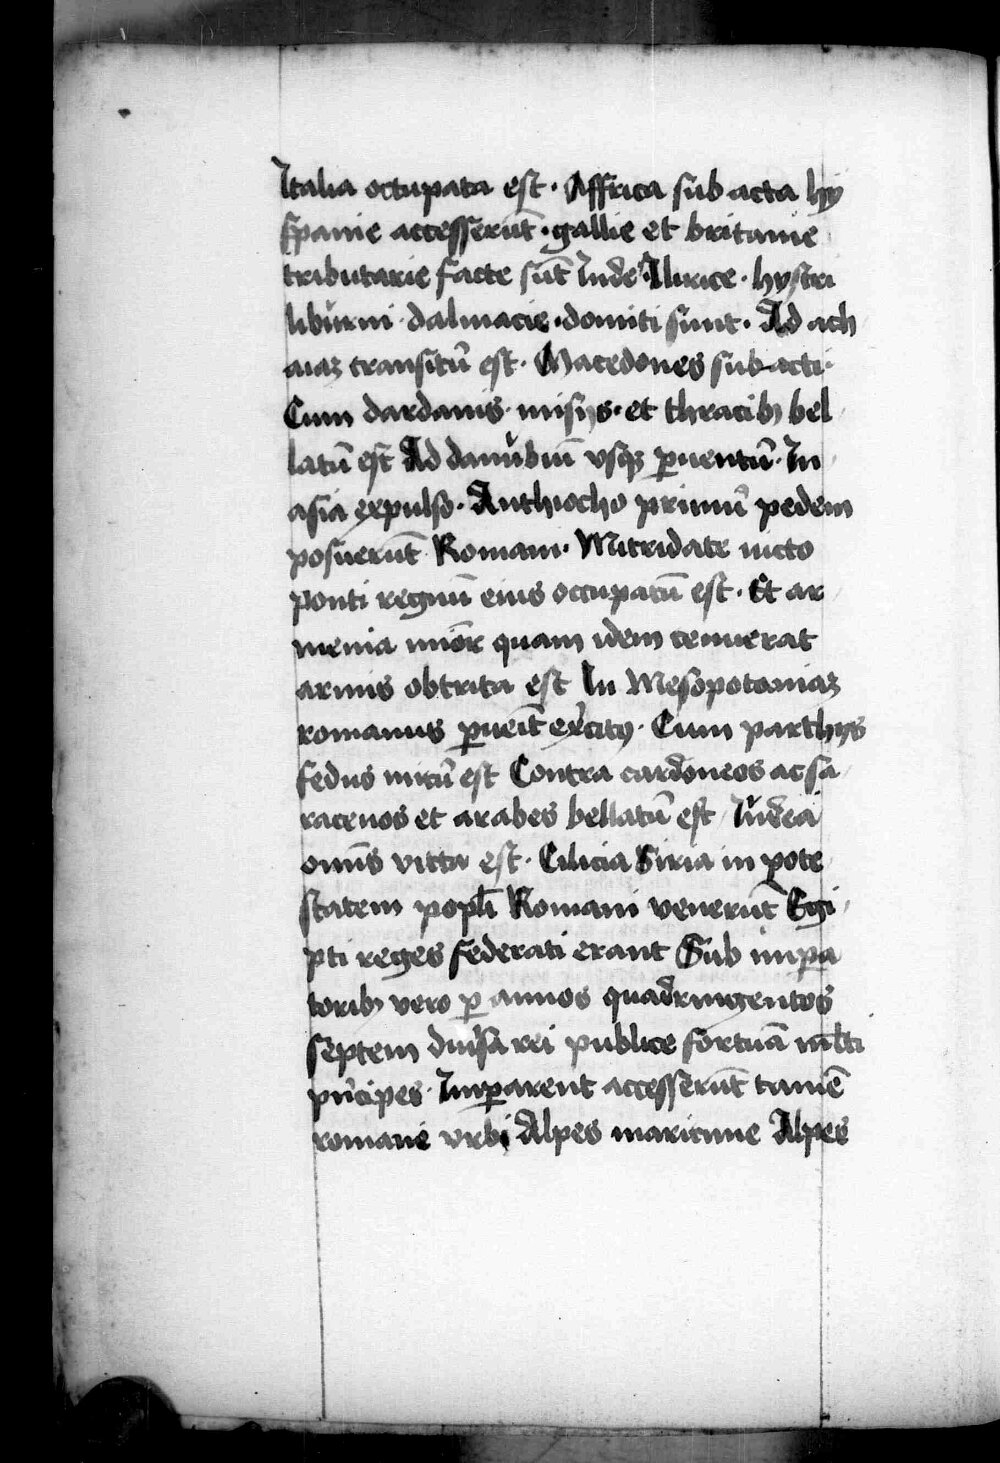 Italia occupata est · Affrica sub acta hy
spanie accesserūt · gallie et britanie
tributarie facte sūt Inde Ilirice · hystri
liburni · dalmacie · domiti sunt · Ad ach
aiaȝ transitū est · Macedones sub acti ·
Cum dardanis · misijs · et thracibꝫ bel
latū est Ad danubiū vsqꝫ ꝑuentū · In
asia expulso · Anthiocho primū pedem
posuerūt Romani · Mitridate victo
ponti regnū eius occupatū est · Et ar
menia mior̄ quam idem tenuerat
armis obtrita est In Mesopotamiaȝ
romanus ꝑueīt exͬcitꝰ · Cum parthijs
fedus initū est Contra cardoneos ac sa
racenos et arabes bellatū est Iudea
omīs victa est · Cilicia Siria in pote
statem popli̅ Romani venerūt Egi
pti reges federati erant Sub imꝑa
toribꝫ vero ꝑ annos quadringentos
septem diuͬsa rei publice fortuā mlti̅
pͥncipes · Imꝑarent accesserūt tamē
romane vrbi Alpes maritime Alpes